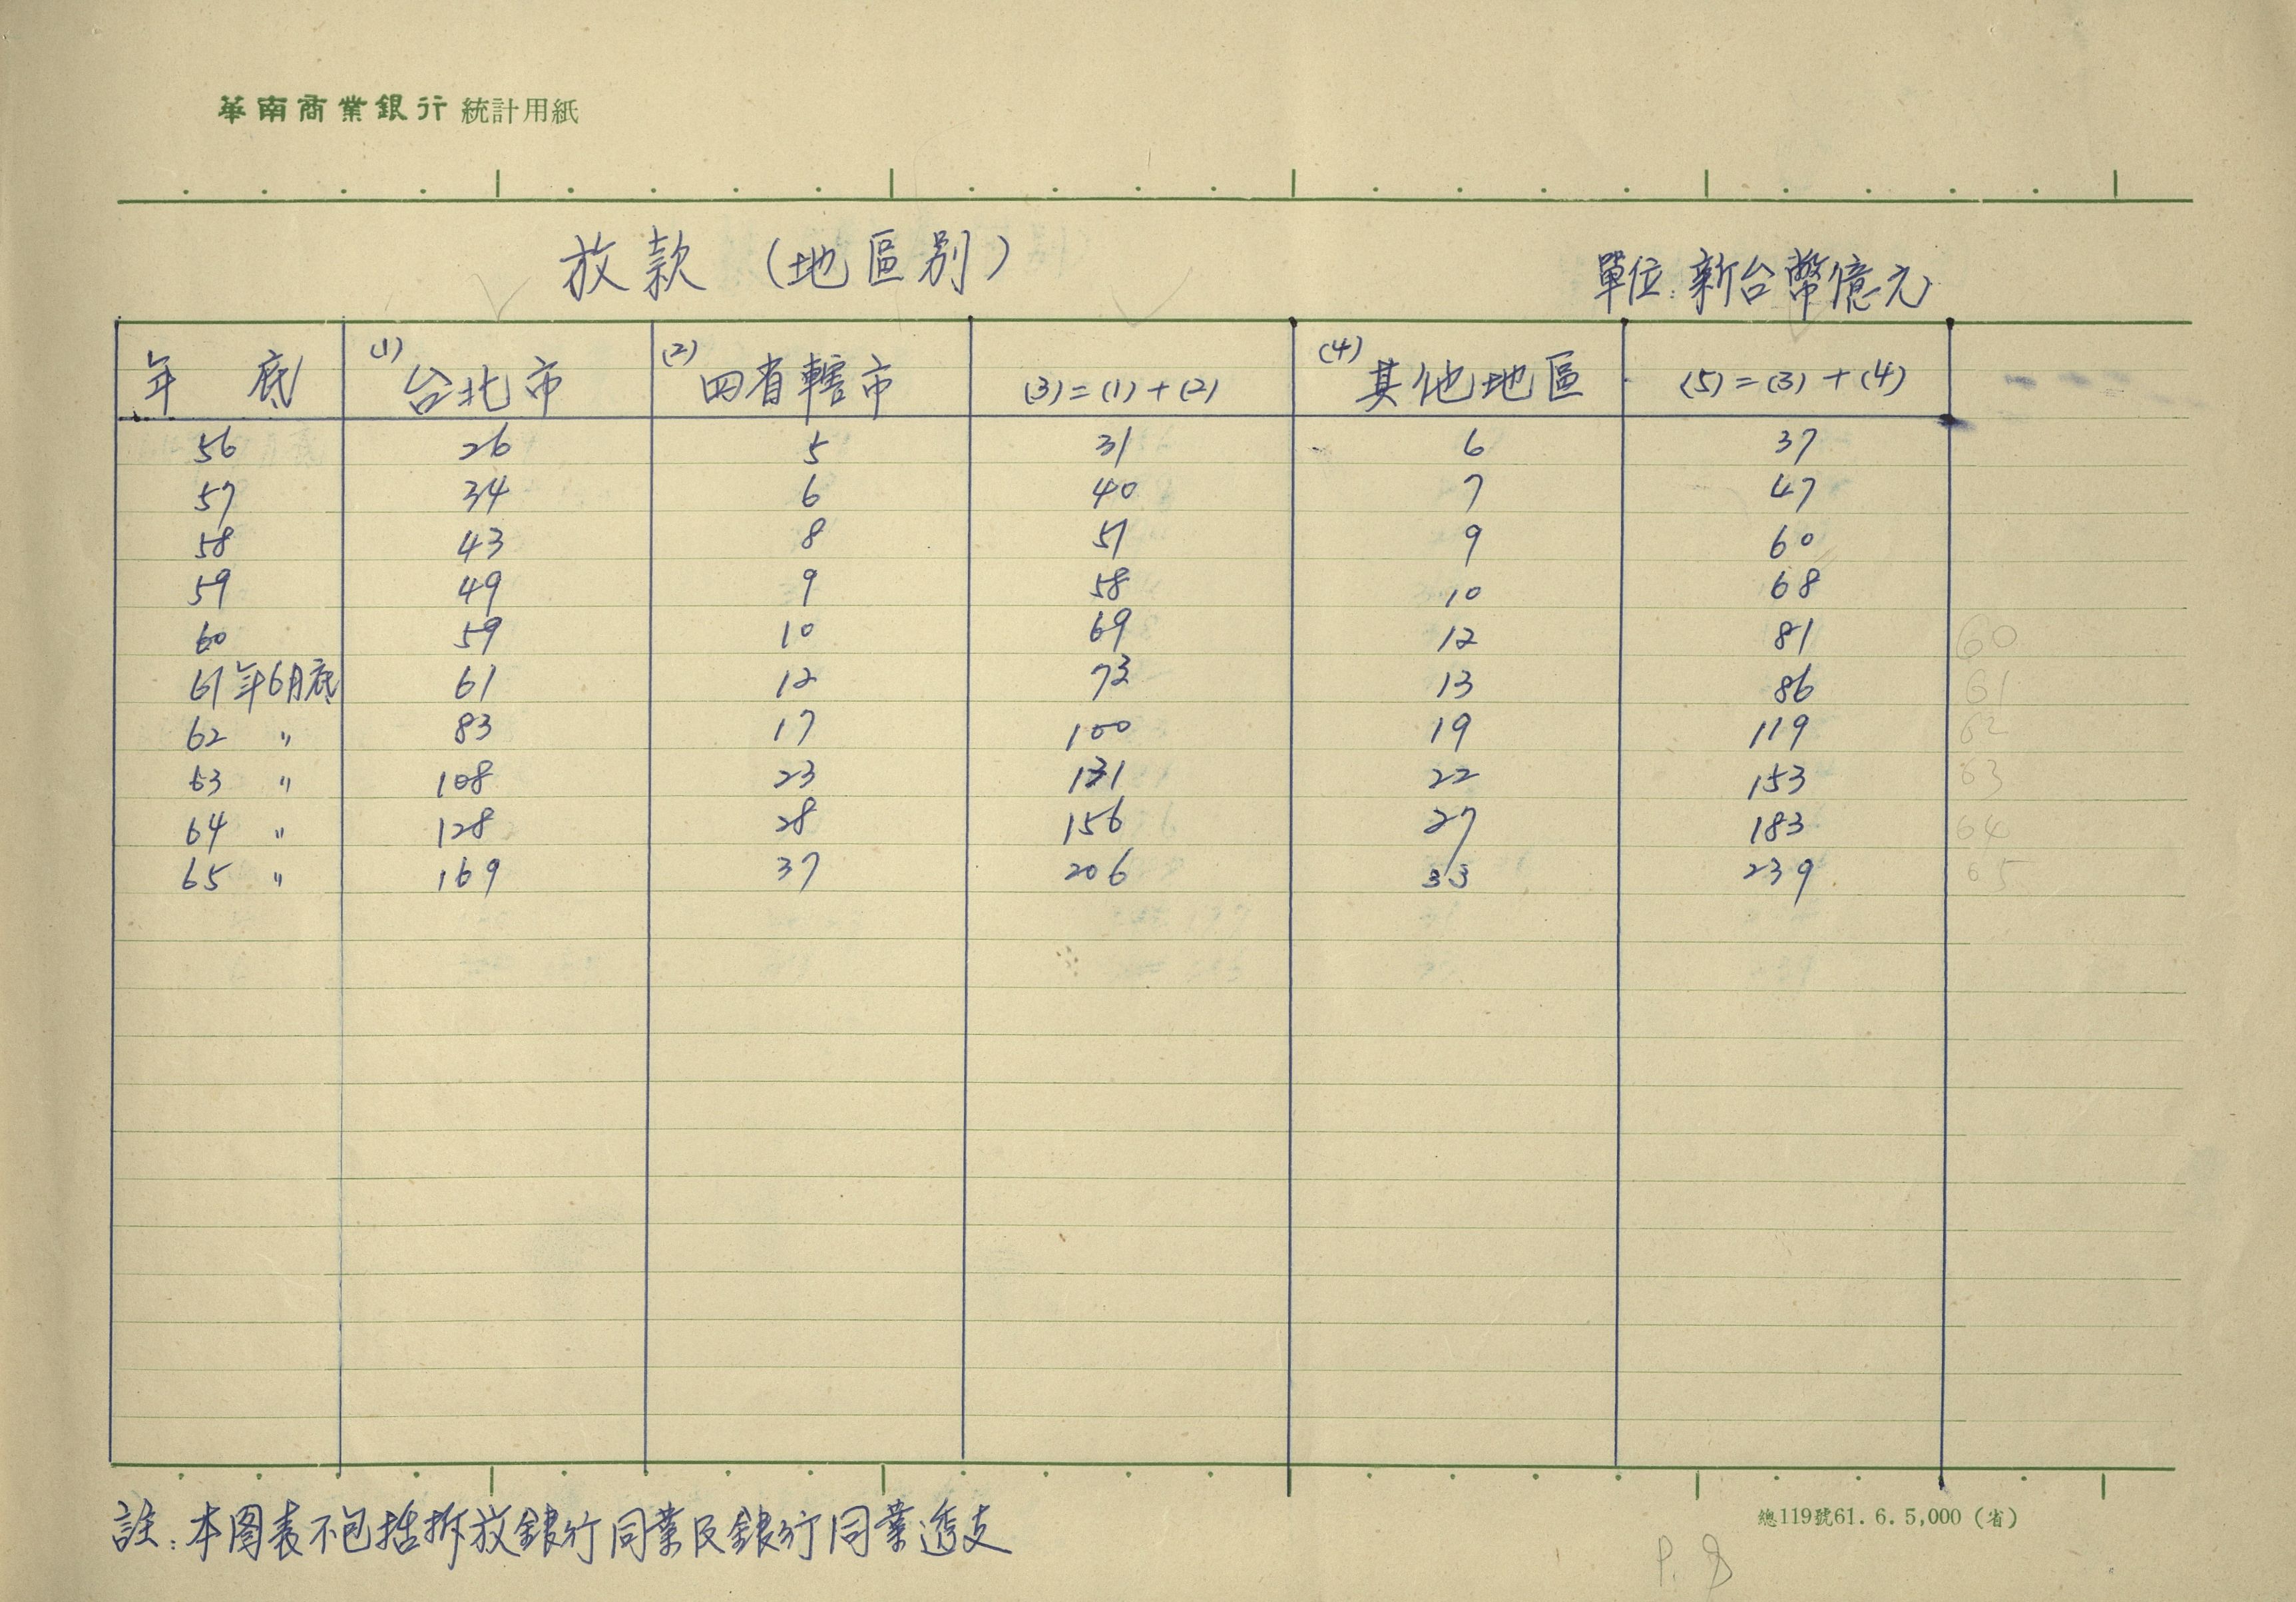 華南商業銀行 統計用紙
放款（地區別）
單位：新台幣億元
年 底 (1) 台北市 (2) 四省轄市 (3)=(1)+(2) (4) 其他地區 (5)=(3)+(4)
56 26 5 31 6 37
57 34 6 40 7 47
58 43 8 51 9 60
59 49 9 58 10 68
60 59 10 69 12 81 60
61年6月底 61 12 73 13 86 61
62 〃 83 17 100 19 119 62
63 〃 108 23 131 22 153 63
64 〃 128 28 156 27 183 64
65 〃 169 37 206 33 239 65
註：本图表不包括拆放銀行同業及銀行同業透支
總119號61. 6. 5,000（省）
P. 8